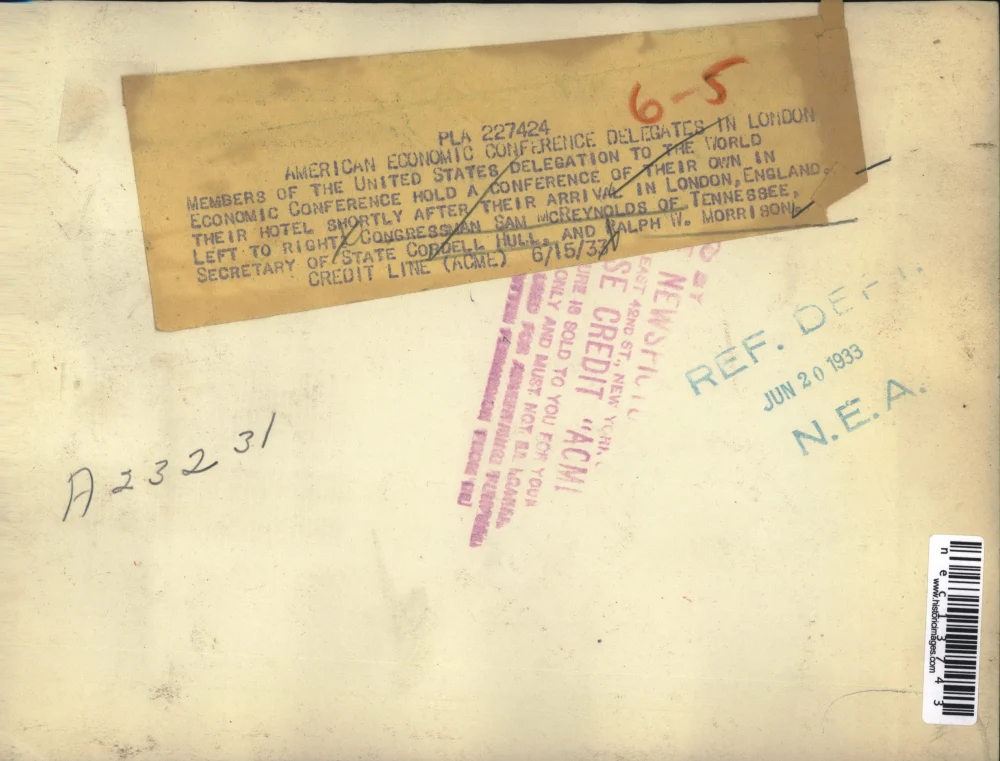 6-5
PLA 227424
AMERICAN ECONOMIC CONFERENCE DELEGATES IN LONDON
MEMBERS OF THE UNITED STATES DELEGATION TO THE WORLD
ECONOMIC CONFERENCE HOLD A CONFERENCE OF THEIR OWN IN
THEIR HOTEL SHORTLY AFTER THEIR ARRIVAL IN LONDON, ENGLAND.
LEFT TO RIGHT, CONGRESSMAN SAM MCREYNOLDS OF TENNESSEE,
SECRETARY OF STATE CORDELL HULL, AND RALPH W. MORRISON.
CREDIT LINE (ACME) 6/15/33
BY
EAST 42ND ST., NEW
SE CREDIT "ACM
IS SOLD TO YOU FOR YOUR
ONLY AND MUST NOT BE
USED FOR ADVERTISING
REF.
JUN 20 1933
N.E.A.
A23231
nec13743
www.historicimages.com